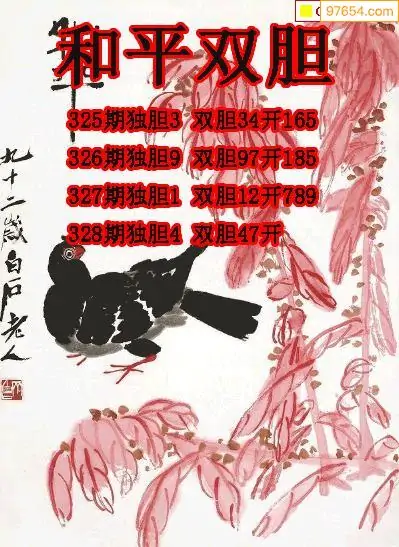 97654.com
和平双胆
325期独胆3 双胆34开165
326期独胆9 双胆97开185
327期独胆1 双胆12开789
328期独胆4 双胆47开
九十二岁白石老人